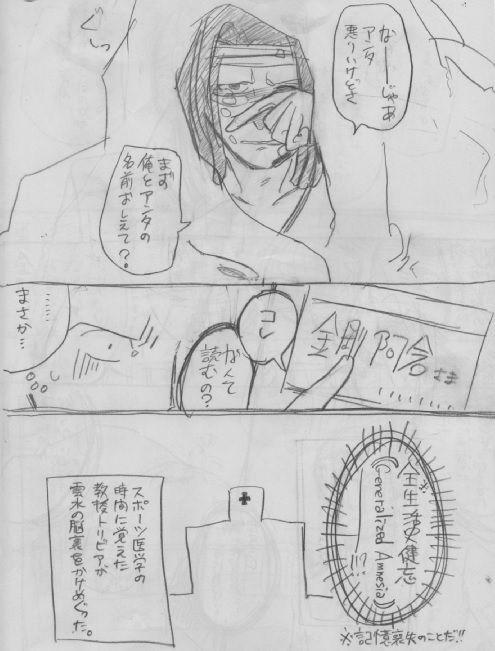 なーーじゃあ
アンタ
悪りいけどさ
ぐしっ
まず
俺とアンタの
名前おしえて?
金剛 阿含さま
コレ
なんて
読むの?
……
まさか…
全生活史健忘
(Generalized Amnesia)
!!?
※記憶喪失のことだ!!
スポーツ医学の
時間に覚えた
教授トリビアが
雲水の脳裏をかけめぐった。